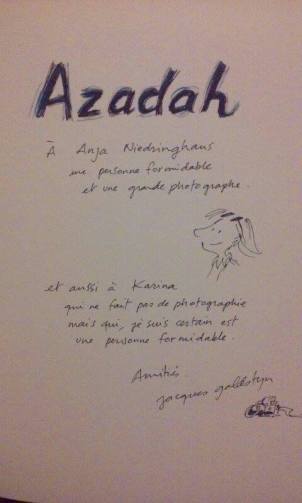 Azadah
À Anja Niedringhaus
une personne formidable
et une grande photographe.
et aussi à Karina
qui ne fait pas de photographie
mais qui, je suis certain est
une personne formidable.
Amitiés.
Jacques Goldstyn